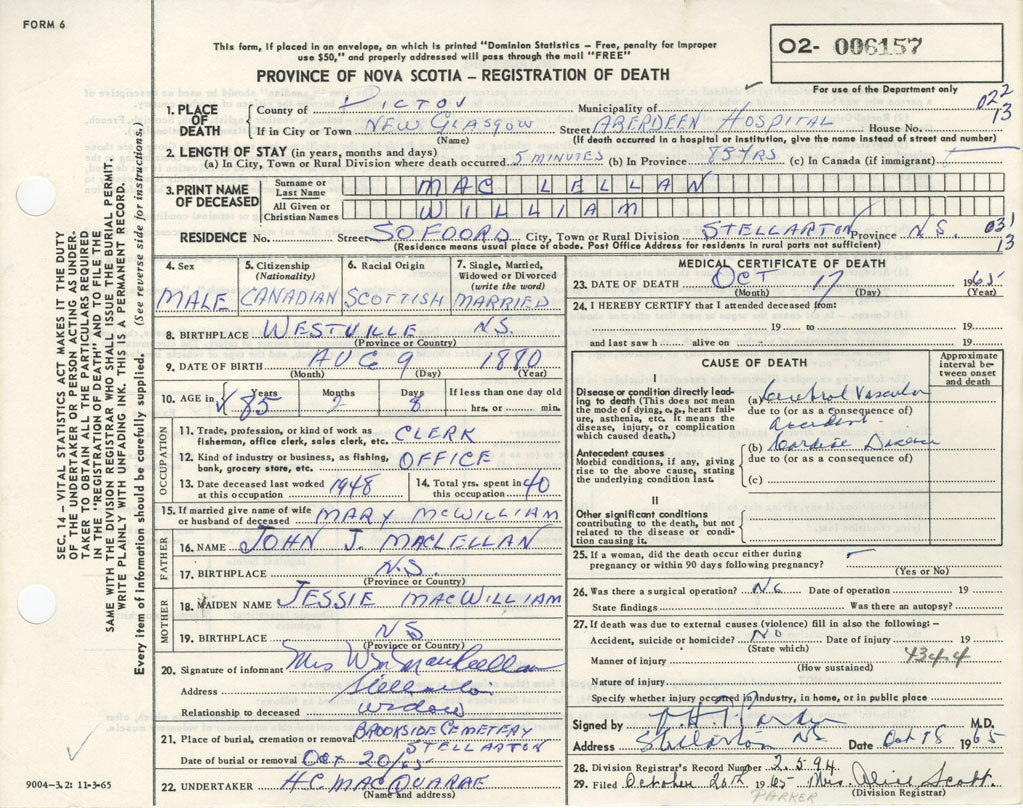 FORM 6
This form, if placed in an envelope, on which is printed "Dominion Statistics – Free, penalty for improper
use $50," and properly addressed will pass through the mail "FREE"
PROVINCE OF NOVA SCOTIA – REGISTRATION OF DEATH
O2- 006157
For use of the Department only
022
13
1. PLACE OF DEATH
County of PICTOU Municipality of
If in City or Town NEW GLASGOW Street ABERDEEN HOSPITAL House No.
(Name) (If death occurred in a hospital or institution, give the name instead of street and number)
2. LENGTH OF STAY (in years, months and days)
(a) In City, Town or Rural Division where death occurred 5 MINUTES (b) In Province 85 YRS (c) In Canada (if immigrant)
3. PRINT NAME OF DECEASED
Surname or Last Name MAC LELLAN
All Given or Christian Names WILLIAM
RESIDENCE No. Street S. FOORD City, Town or Rural Division STELLARTON Province N.S. 031
13
(Residence means usual place of abode. Post Office Address for residents in rural parts not sufficient)
4. Sex
MALE
5. Citizenship
(Nationality)
CANADIAN
6. Racial Origin
SCOTTISH
7. Single, Married,
Widowed or Divorced
(write the word)
MARRIED
8. BIRTHPLACE WESTVILLE N.S.
(Province or Country)
9. DATE OF BIRTH AUG 9 1880
(Month) (Day) (Year)
10. AGE in Years 85 Months 2 Days 8 If less than one day old
hrs. or min.
OCCUPATION
11. Trade, profession, or kind of work as
fisherman, office clerk, sales clerk, etc. CLERK
12. Kind of industry or business, as fishing,
bank, grocery store, etc. OFFICE
13. Date deceased last worked
at this occupation 1948
14. Total yrs. spent in
this occupation 40
15. If married give name of wife
or husband of deceased MARY McWILLIAM
FATHER
16. NAME JOHN J. MACLELLAN
17. BIRTHPLACE N.S.
(Province or Country)
MOTHER
18. MAIDEN NAME JESSIE MACWILLIAM
19. BIRTHPLACE NS
(Province or Country)
20. Signature of informant Mrs Wm MacLellan
Address Stellarton
Relationship to deceased widow
21. Place of burial, cremation or removal BROOKSIDE CEMETERY
STELLARTON
Date of burial or removal Oct 20/65
22. UNDERTAKER H.C. MACQUARRE
(Name and address)
MEDICAL CERTIFICATE OF DEATH
23. DATE OF DEATH OCT 17 1965
(Month) (Day) (Year)
24. I HEREBY CERTIFY that I attended deceased from:
19 to 19
and last saw h alive on 19
CAUSE OF DEATH
Approximate
interval be-
tween onset
and death
I
Disease or condition directly lead-
ing to death (This does not mean
the mode of dying, e.g., heart fail-
ure, asthenia, etc. It means the
disease, injury, or complication
which caused death.)
(a) Cerebral Vascular
due to (or as a consequence of)
Accident
Antecedent causes
Morbid conditions, if any, giving
rise to the above cause, stating
the underlying condition last.
(b) Cardiac Disease
due to (or as a consequence of)
(c)
II
Other significant conditions
contributing to the death, but not
related to the disease or condi-
tion causing it.
25. If a woman, did the death occur either during
pregnancy or within 90 days following pregnancy?
(Yes or No)
26. Was there a surgical operation? No Date of operation 19
State findings Was there an autopsy?
27. If death was due to external causes (violence) fill in also the following:–
Accident, suicide or homicide? No Date of injury 19
(State which) 434.4
Manner of injury
(How sustained)
Nature of injury
Specify whether injury occurred in Industry, in home, or in public place
Signed by Parker M.D.
Address Stellarton NS Date Oct 18 1965
28. Division Registrar's Record Number 2594
29. Filed October 20th 1965 Mrs. Alice Scott
(Division Registrar)
PARKER
SEC. 14 – VITAL STATISTICS ACT MAKES IT THE DUTY
OF THE UNDERTAKER OR PERSON ACTING AS UNDER-
TAKER TO OBTAIN ALL THE PARTICULARS REQUIRED
IN THE "REGISTRATION OF DEATH" AND TO FILE THE
SAME WITH THE DIVISION REGISTRAR WHO SHALL ISSUE THE BURIAL PERMIT.
WRITE PLAINLY WITH UNFADING INK. THIS IS A PERMANENT RECORD.
Every item of information should be carefully supplied. (See reverse side for instructions.)
9004–3.2: 11-3-65